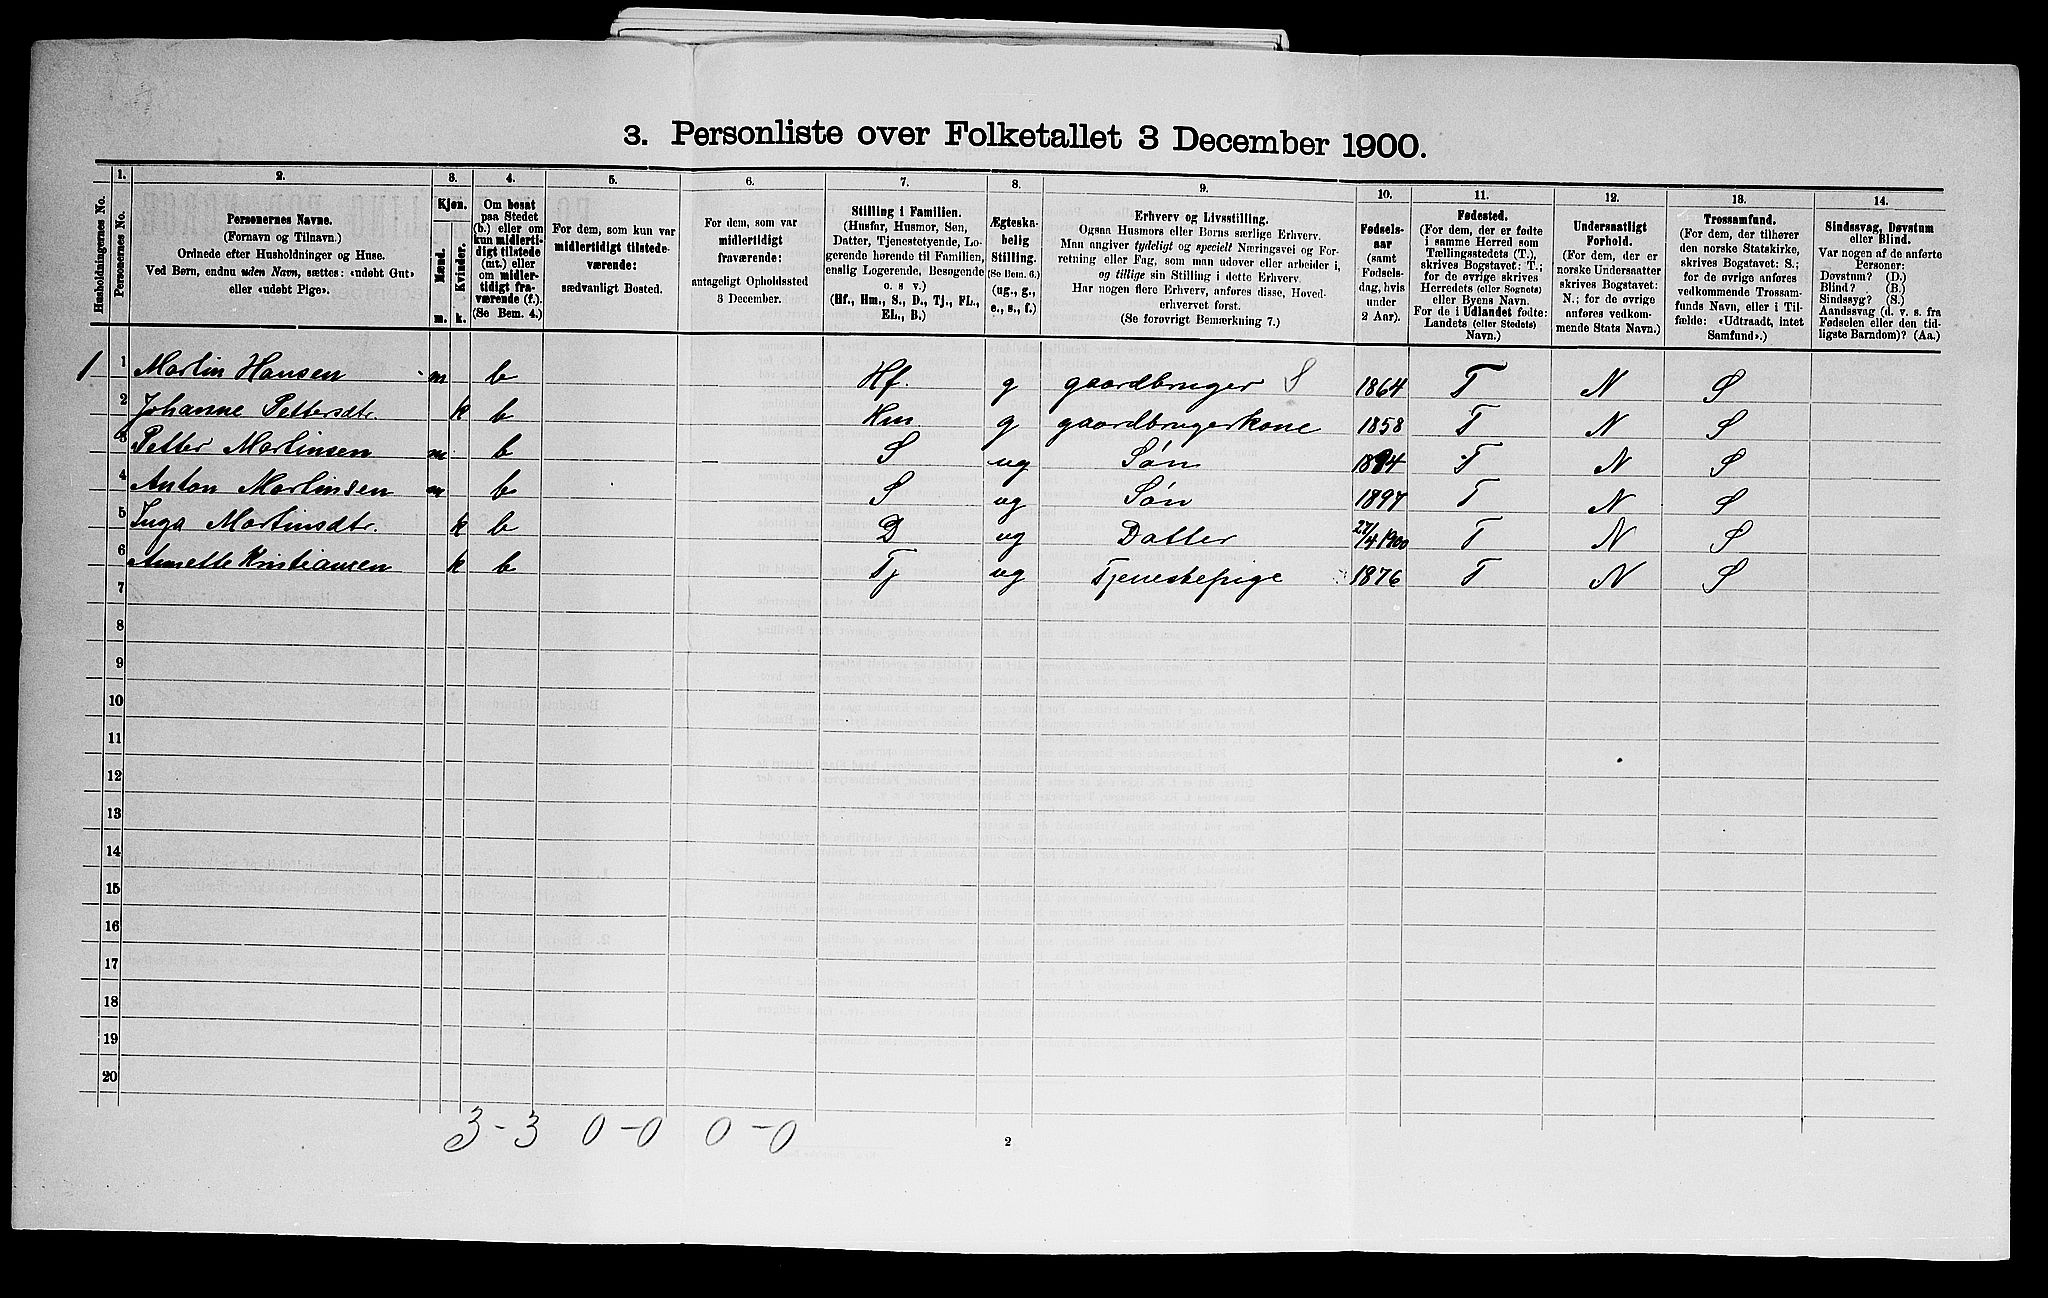 3. Personliste over Folketallet 3 December 1900.
1. 2. 3. 4. 5. 6. 7. 8. 9. 10. 11. 12. 13. 14.
Husholdningernes No.
Personernes No.
Personernes Navne.
(Fornavn og Tilnavn.)
Ordnede efter Husholdninger og Huse.
Ved Børn, endnu uden Navn, sættes: «udøbt Gut»
eller «udøbt Pige».
Kjøn.
Mænd.
Kvinder.
m. k.
Om bosat
paa Stedet
(b.) eller om
kun midlerti-
digt tilstede
(mt.) eller
om midler-
tidigt fra-
værende (f.).
(Se Bem. 4.)
For dem, som kun var
midlertidigt tilstede-
værende:
sædvanligt Bosted.
For dem, som var
midlertidigt
fraværende:
antageligt Opholdssted
3 December.
Stilling i Familien.
(Husfar, Husmor, Søn,
Datter, Tjenestetyende, Lo-
gerende hørende til Familien,
enslig Logerende, Besøgende
o. s v.)
(Hf., Hm., S., D., Tj., FL.,
EL., B.)
Ægteska-
belig
Stilling.
(Se Bem. 6.)
(ug., g.,
e., s., f.)
Erhverv og Livsstilling.
Ogsaa Husmors eller Børns særlige Erhverv.
Man angiver tydeligt og specielt Næringsvei og For-
retning eller Fag, som man udøver eller arbeider i,
og tillige sin Stilling i dette Erhverv.
Har nogen flere Erhverv, anføres disse, Hoved-
erhvervet først.
(Se forøvrigt Bemærkning 7.)
Fødsels-
aar
(samt
Fødsels-
dag, hvis
under
2 Aar).
Fødested.
(For dem, der er fødte
i samme Herred som
Tællingsstedets (T.),
skrives Bogstavet: T.;
for de øvrige skrives
Herredets (eller Sognets)
eller Byens Navn.
For de i Udlandet fødte:
Landets (eller Stedets)
Navn.)
Undersaatligt
Forhold.
(For dem, der er
norske Undersaatter
skrives Bogstavet:
N.; for de øvrige
anføres vedkom-
mende Stats Navn.)
Trossamfund.
(For dem, der tilhører
den norske Statskirke,
skrives Bogstavet: S.;
for de øvrige anføres
vedkommende Trossam-
funds Navn, eller i Til-
fælde: «Udtraadt, intet
Samfund».)
Sindssvag, Døvstum
eller Blind.
Var nogen af de anførte
Personer:
Døvstum? (D.)
Blind? (B.)
Sindssyg? (S.)
Aandssvag (d. v. s. fra
Fødselen eller den tid-
ligste Barndom)? (Aa.)
1 1 Martin Hansen m b Hf. g gaardbruger S 1864 T N S
2 Johanne Pettersdtr. k b Hm g gaardbrugerkone 1858 T N S
3 Petter Martinsen m b S ug Søn 1894 T N S
4 Anton Martinsen m b S ug Søn 1897 T N S
5 Inga Martinsdtr. k b D ug Datter 27/4 1900 T N S
6 Annette Kristiansen k b Tj ug Tjenestepige 1876 T N S
7
8
9
10
11
12
13
14
15
16
17
18
19
20
3 - 3 0 - 0 0 - 0
2